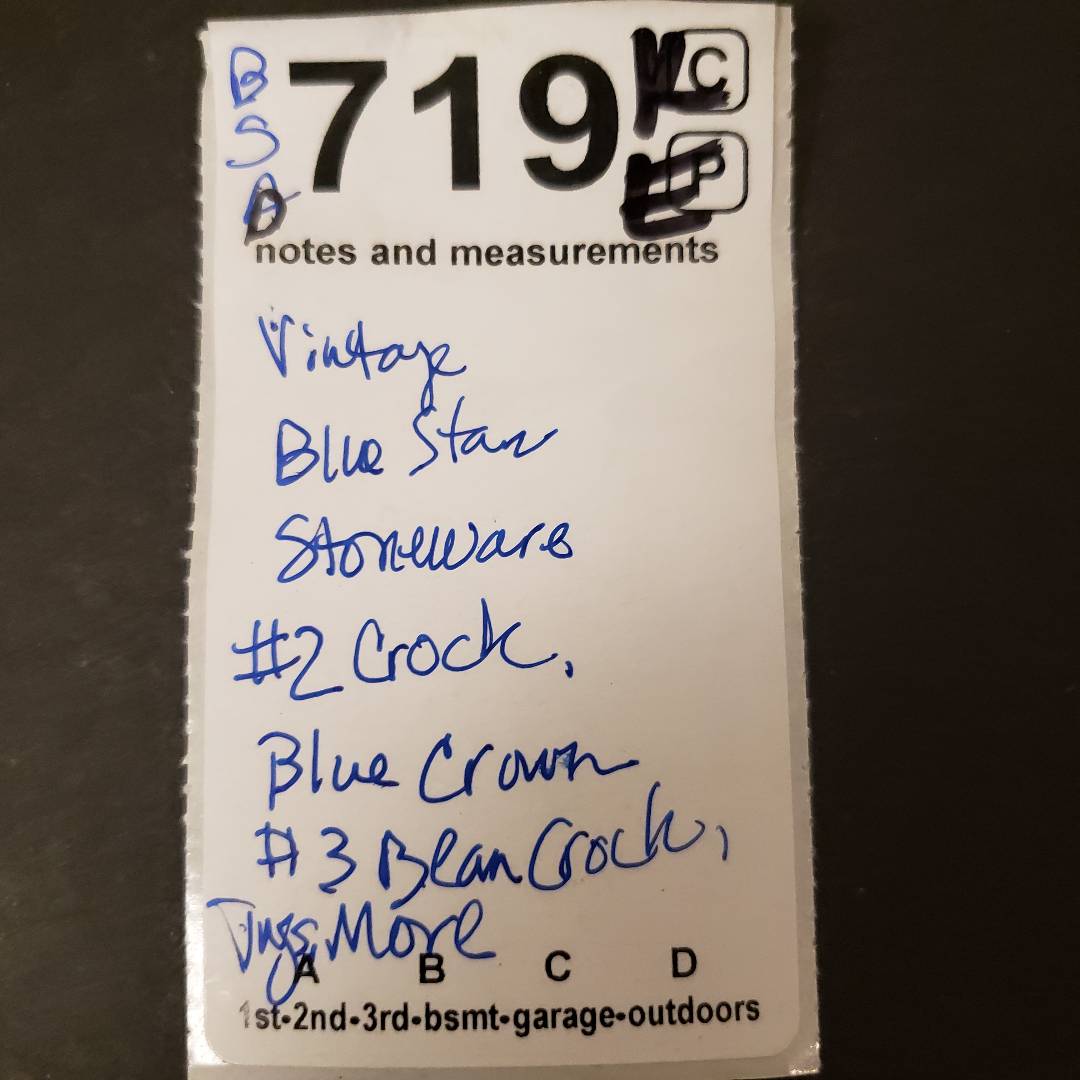 B
S
A
719
C
P
notes and measurements
Vintage
Blue Star
Stoneware
#2 Crock,
Blue Crown
#3 Bean Crock,
Jugs, More
A B C D
1st-2nd-3rd-bsmt-garage-outdoors